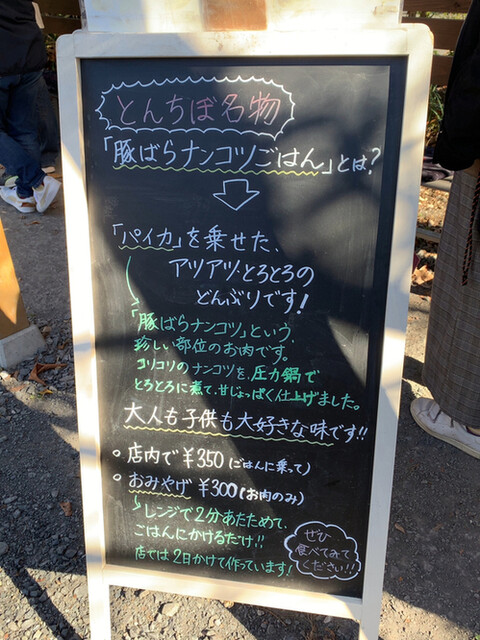 とんちぼ名物
「豚ばらナンコツごはん」とは?
「パイカ」を乗せた、
アツアツ・とろとろの
どんぶりです!
「豚ばらナンコツ」という、
珍しい部位のお肉です。
コリコリのナンコツを、圧力鍋で
とろとろに煮て、甘じょっぱく仕上げました。
大人も子供も大好きな味です!!
○ 店内で ¥350 (ごはんに乗って)
○ おみやげ ¥300 (お肉のみ)
レンジで2分あたためて、
ごはんにかけるだけ!!
店では2日かけて作っています!
ぜひ
食べてみて
ください!!